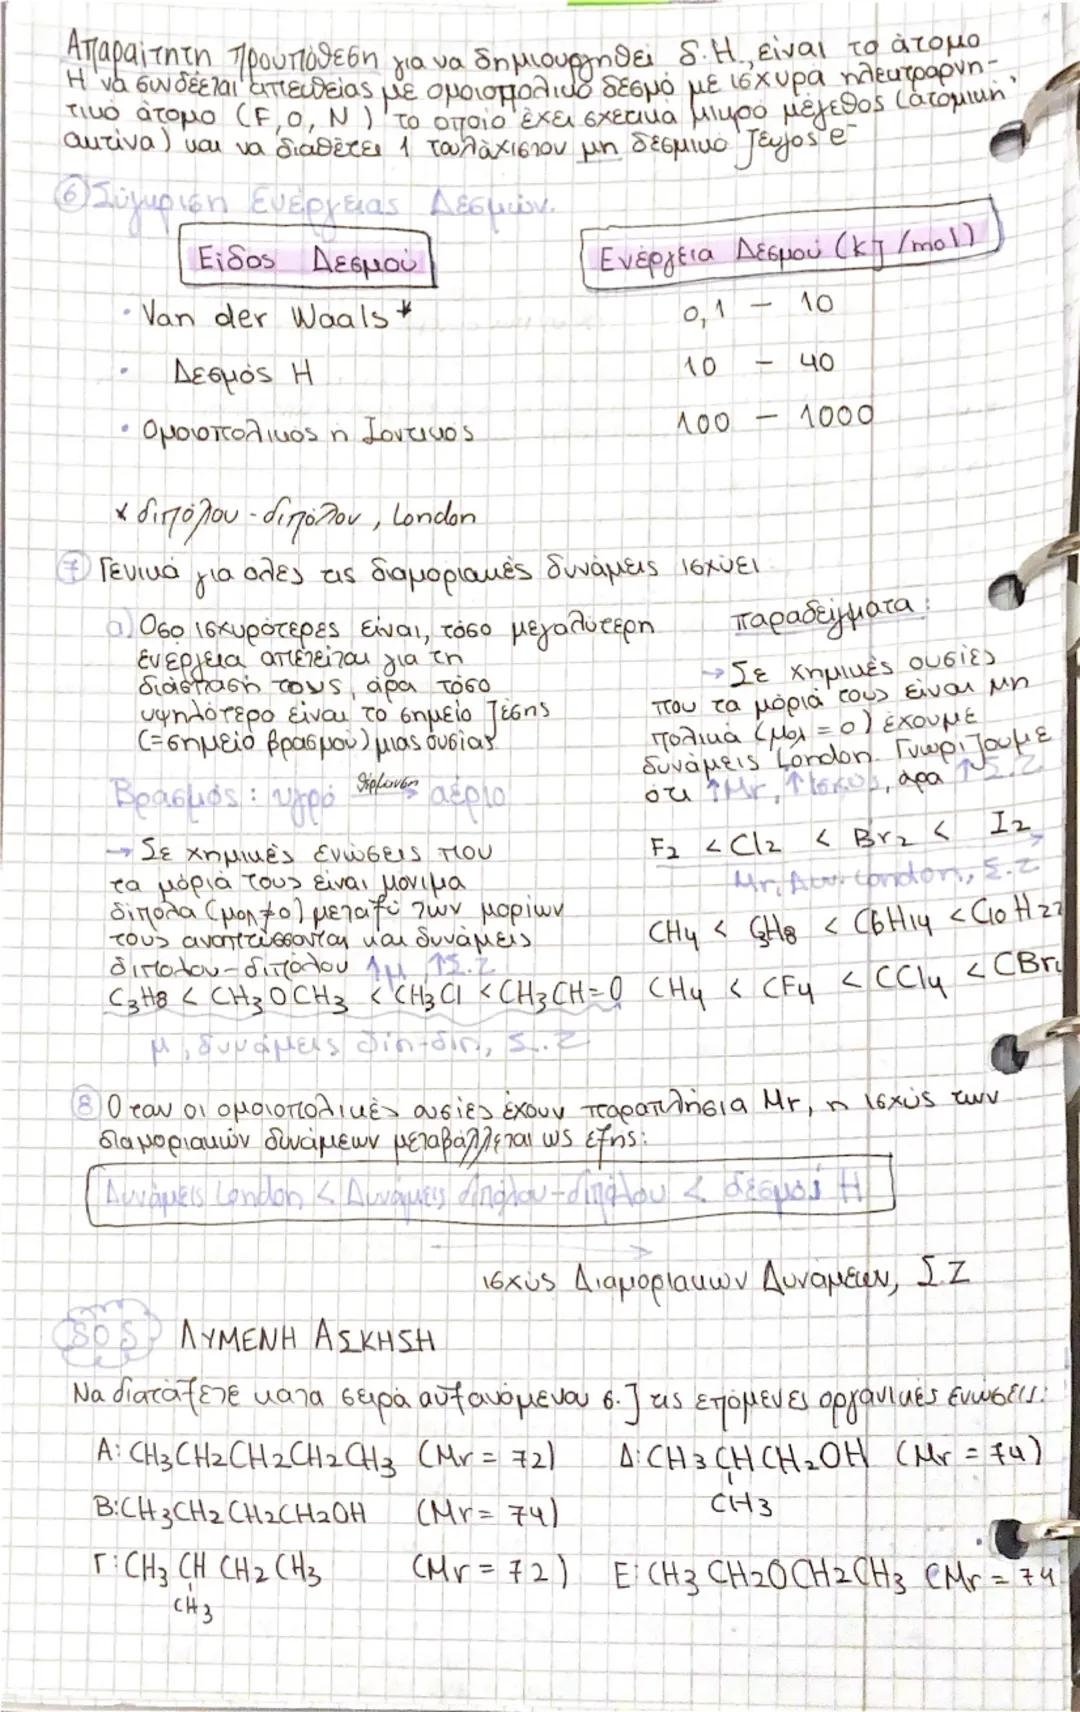 Απαραίτητη προυπόθεση για να δημιουργηθεί δ.Η., είναι το άτομο
Η να συνδέεται απευθείας με ομοιοπολικό δεσμό με ισχυρά ηλεκτραρνη-
τικό άτομο (F, O, N) το οποίο έχει σχετικά μικρό μέγεθος (ατομική
ακτίνα) και να διαθέτει 1 τουλάχιστον μη δεσμικό ζεύγος e⁻
⑥ Σύγκριση Ενέργειας Δεσμών.
Είδος Δεσμού Ενέργεια Δεσμού (kJ/mol)
• Van der Waals * 0,1 – 10
• Δεσμός Η 10 – 40
• Ομοιοπολικός ή Ιοντικός 100 – 1000
* διπόλου-διπόλου, London
⑦ Γενικά για όλες τις διαμοριακές δυνάμεις ισχύει
α) Όσο ισχυρότερες είναι, τόσο μεγαλύτερη
ενέργεια απαιτείται για τη
διάσπαση τους, άρα τόσο
υψηλότερο είναι το σημείο ζέσης
(=σημείο βρασμού) μιας ουσίας.
Βρασμός: υγρό θέρμανση → αέριο
→ Σε χημικές ενώσεις που
τα μόριά τους είναι μόνιμα
δίπολα (μολ≠0) μεταξύ των μορίων
τους αναπτύσσονται και δυνάμεις
διπολου-διπόλου ↑μ, ↑Σ.Ζ
C3H8 < CH3OCH3 < CH3Cl < CH3CH=O
μ, δυνάμεις διπ-διπ, Σ.Ζ
παραδείγματα:
→ Σε χημικές ουσίες
που τα μόριά τους είναι μη
πολικά (μολ = 0) έχουμε
δυνάμεις London. Γνωρίζουμε
ότι ↑Mr, ↑ισχύς, άρα ↑Σ.Ζ
F2 < Cl2 < Br2 < I2
Mr, Δυν. London, Σ.Ζ
CH4 < C3H8 < C6H14 < C10H22
CH4 < CF4 < CCl4 < CBr4
⑧ Όταν οι ομοιοπολικές ουσίες έχουν παραπλήσια Mr, η ισχύς των
διαμοριακών δυνάμεων μεταβάλλεται ως εξής:
Δυνάμεις London < Δυνάμεις διπόλου-διπόλου < δεσμοί Η
→
ισχύς Διαμοριακών Δυνάμεων, Σ.Ζ
SOS ΛΥΜΕΝΗ ΑΣΚΗΣΗ
Να διατάξετε κατα σειρά αυξανόμενου σ.ζ τις επόμενες οργανικές ενώσεις:
Α: CH3CH2CH2CH2CH3 (Mr = 72) Δ: CH3CHCH2OH (Mr = 74)
CH3
Β: CH3CH2CH2CH2OH (Mr = 74)
Γ: CH3CHCH2CH3 (Mr = 72) Ε: CH3CH2OCH2CH3 (Mr = 74
CH3